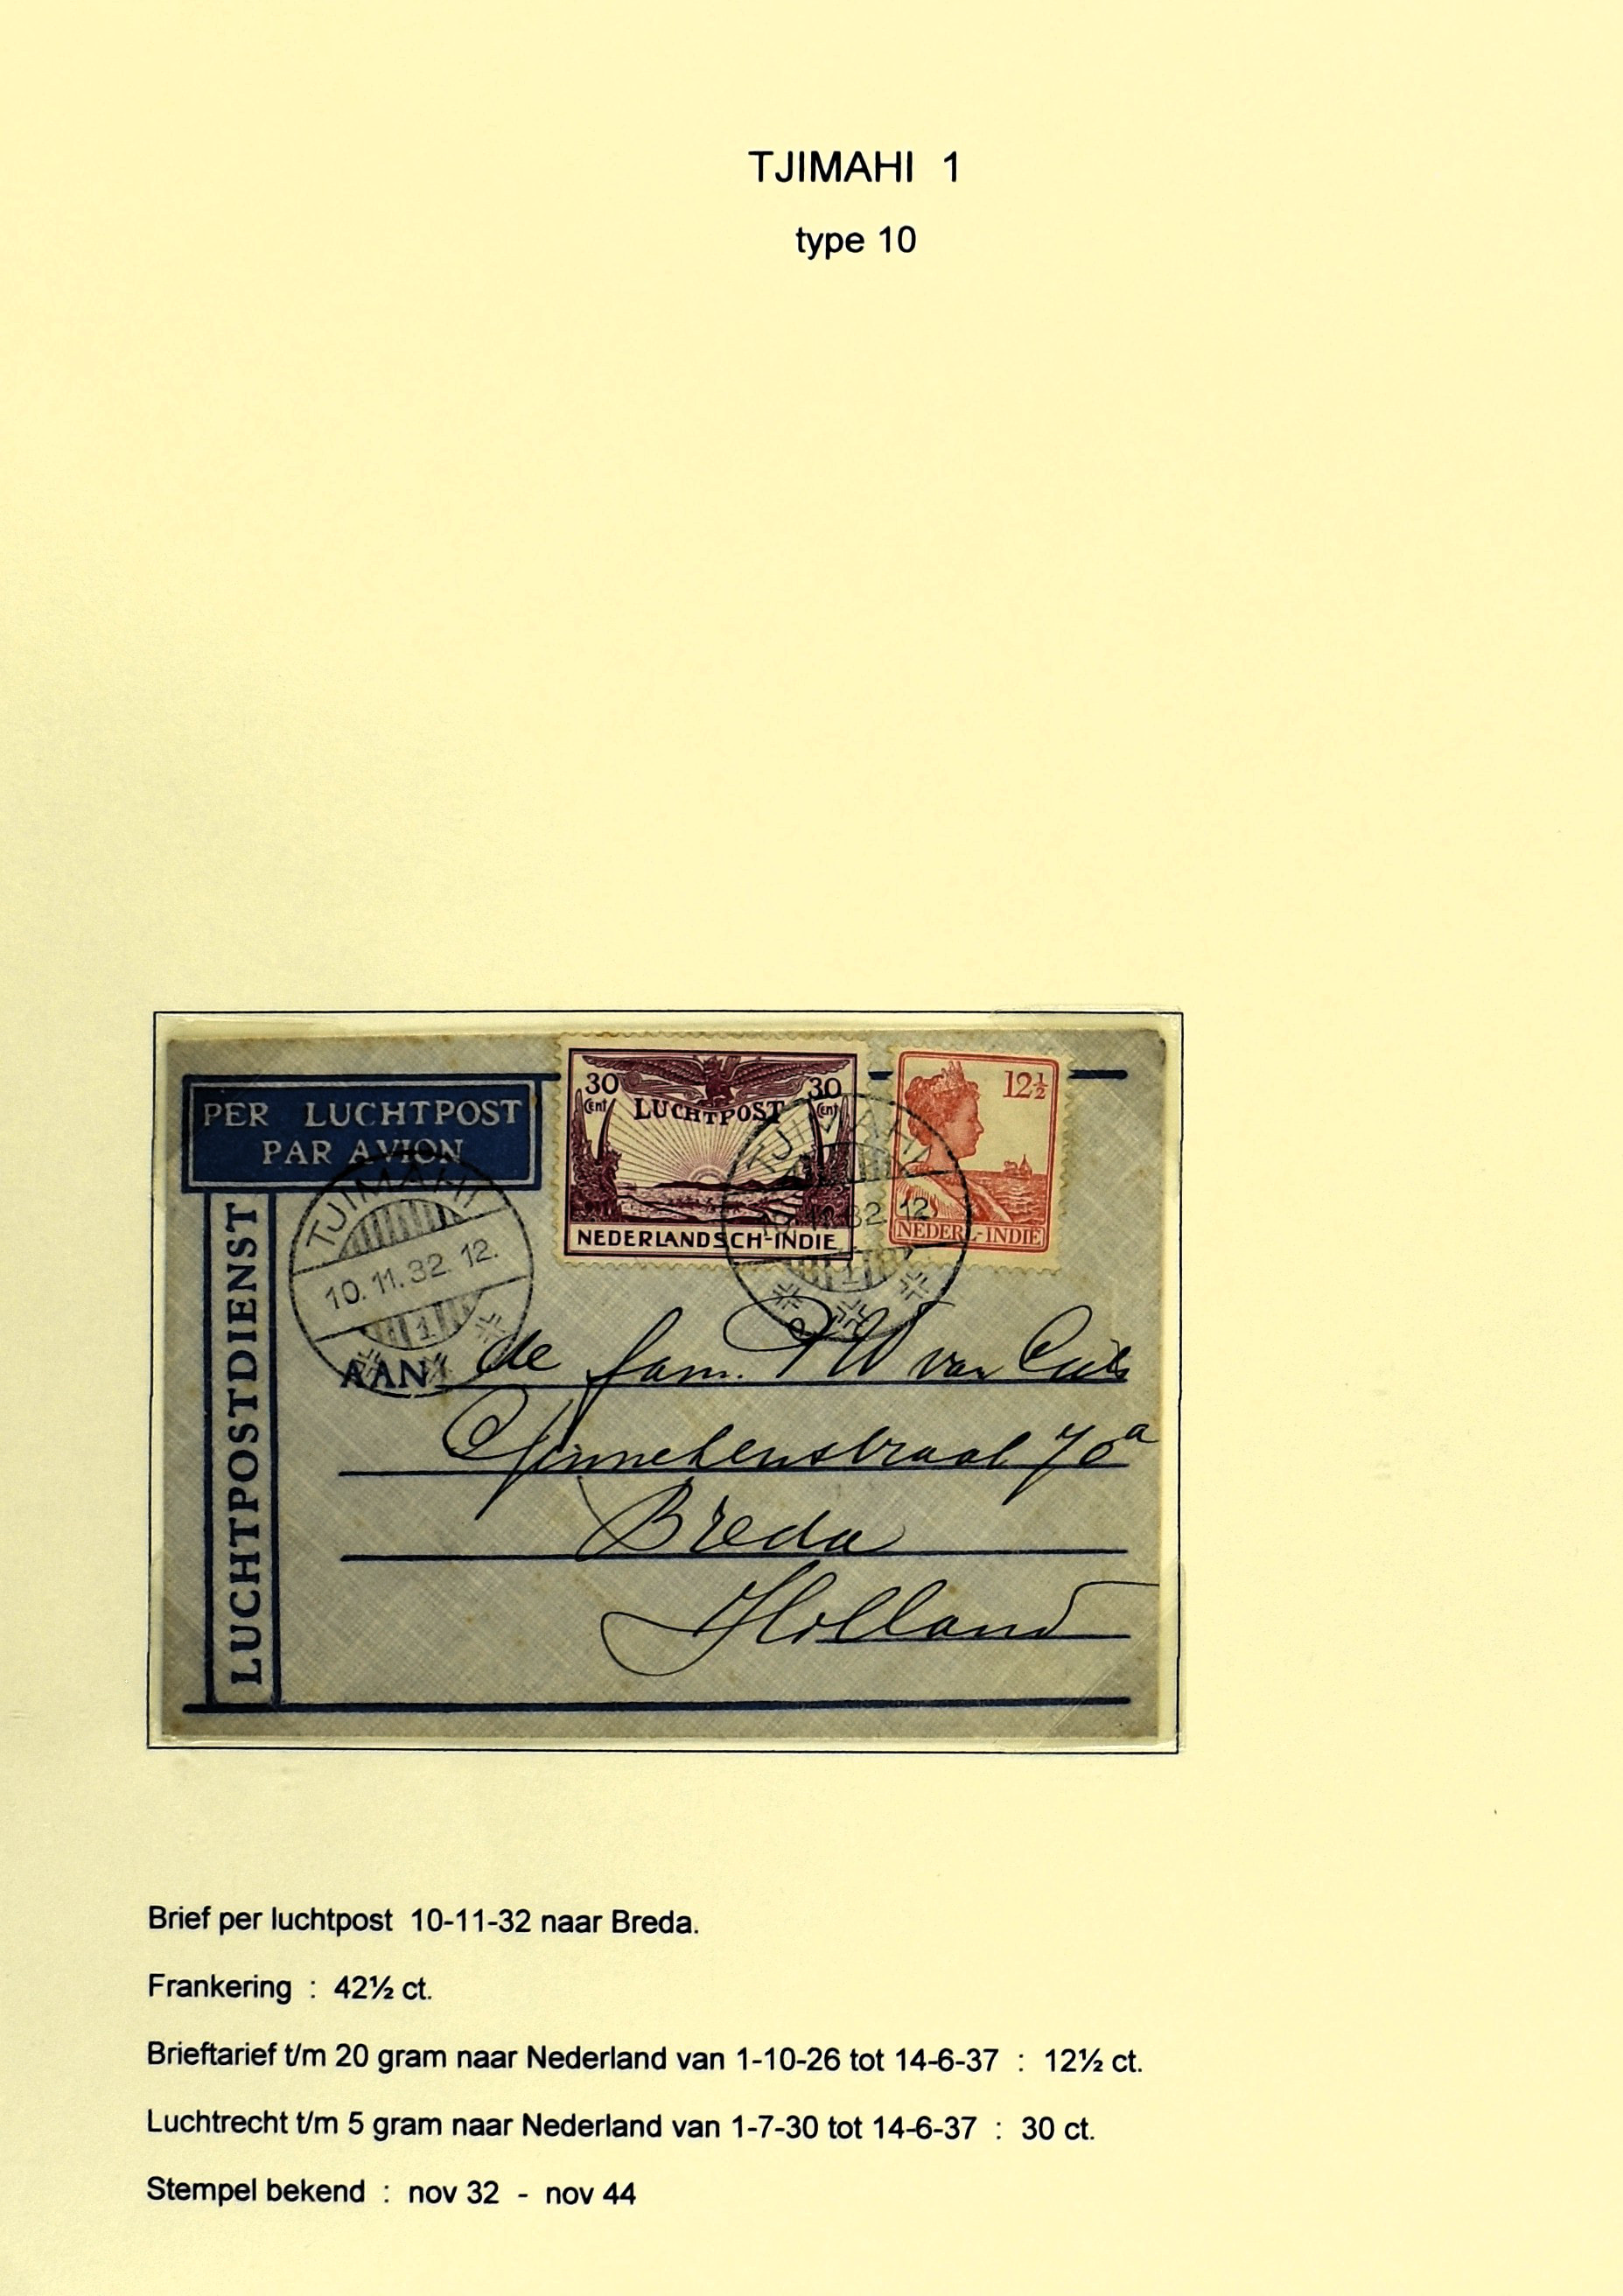 TJIMAHI 1
type 10
PER LUCHTPOST
PAR AVION
LUCHTPOSTDIENST
30 Cent 30 Cent
LUCHTPOST
NEDERLANDSCH-INDIE
12½
NEDERL-INDIE
TJIMAHI
10.11.32.12
1
TJIMAHI
10.11.32.12.
1
AAN de fam. P W van
Ginnekenstraat 70a
Breda
Holland
Brief per luchtpost 10-11-32 naar Breda.
Frankering : 42½ ct.
Brieftarief t/m 20 gram naar Nederland van 1-10-26 tot 14-6-37 : 12½ ct.
Luchtrecht t/m 5 gram naar Nederland van 1-7-30 tot 14-6-37 : 30 ct.
Stempel bekend : nov 32 - nov 44